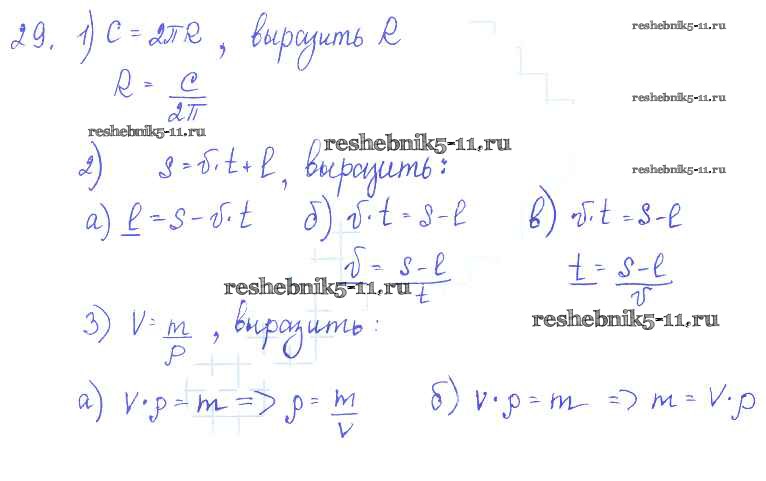 29. 1) C = 2πR, выразить R
reshebnik5-11.ru
R = C/2π
reshebnik5-11.ru
reshebnik5-11.ru
reshebnik5-11.ru
2) s = v·t + l, выразить:
reshebnik5-11.ru
а) l = s - v·t б) v·t = s - l в) v·t = s - l
v = s - l/t t = s - l/v
reshebnik5-11.ru
reshebnik5-11.ru
3) V = m/ρ, выразить:
а) V·ρ = m => ρ = m/V б) V·ρ = m => m = V·ρ